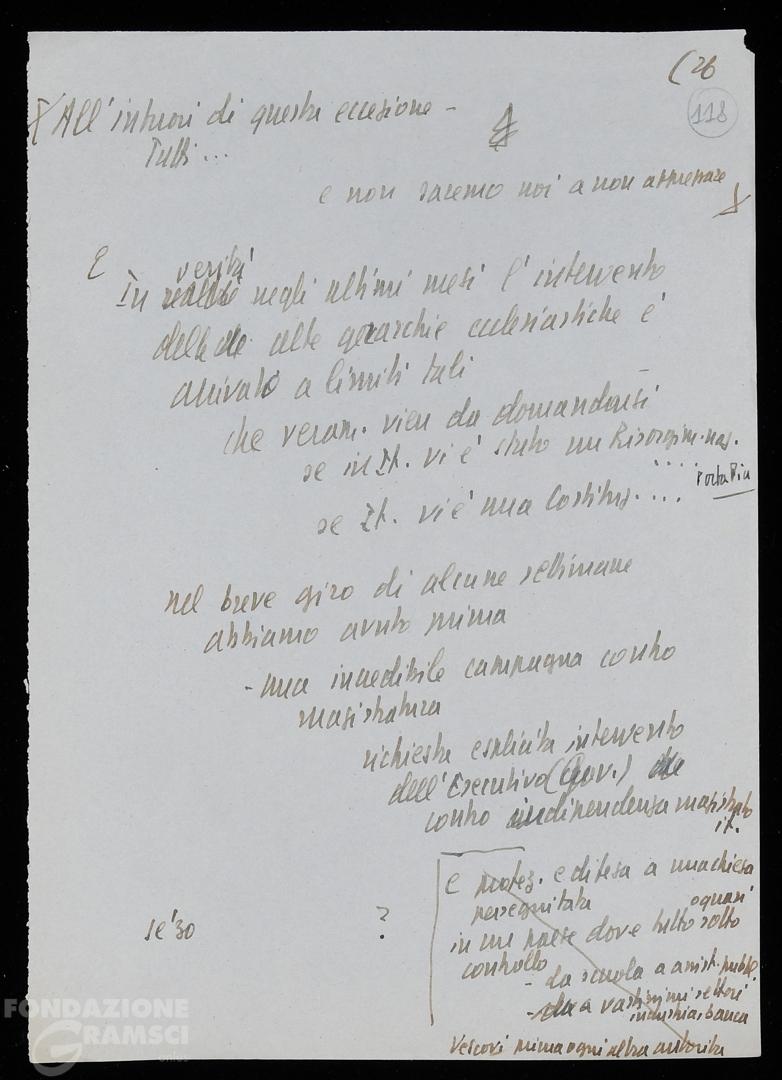 (26
118
All'infuori di questa eccezione -
Tutti...
e non saremo noi a non apprezzare
E verità
In realtà negli ultimi mesi l'intervento
delle alte gerarchie ecclesiastiche è
arrivato a limiti tali
che veram. vien da domandarsi
se in It. vi è stato un Risorgim. naz. ....
Porta Pia
se It. vi è una Costituz. ....
nel breve giro di alcune settimane
abbiamo avuto prima
- una incredibile campagna contro
magistratura
richiesta esplicita intervento
dell'Esecutivo (Gov.)
contro indipendenza magistrato
it.
E protez. e difesa a una chiesa
perseguitata
o quasi
in un paese dove tutto sotto
controllo
- da scuola a assist. pubbl.
- a vastissimi settori
industria banca
Vescovi prima ogni altra autorità
se '30 ?
FONDAZIONE
GRAMSCI
onlus